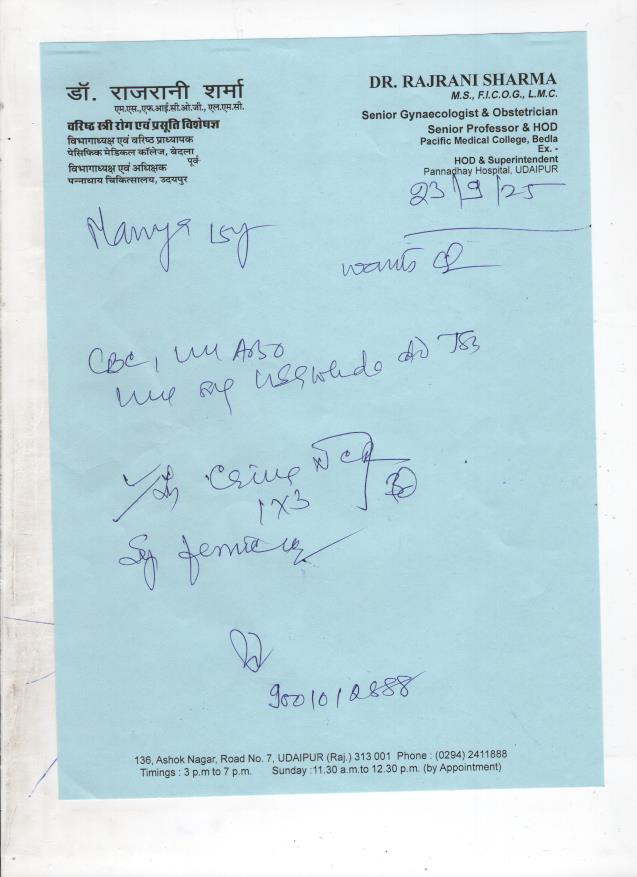 डॉ. राजरानी शर्मा
एम.एस., एफ.आई.सी.ओ.जी., एल.एम.सी.
वरिष्ठ स्त्री रोग एवं प्रसूति विशेषज्ञ
विभागाध्यक्ष एवं वरिष्ठ प्राध्यापक
पेसिफिक मेडिकल कॉलेज, बेदला
पूर्व
विभागाध्यक्ष एवं अधिक्षक
पन्नाधाय चिकित्सालय, उदयपुर
DR. RAJRANI SHARMA
M.S., F.I.C.O.G., L.M.C.
Senior Gynaecologist & Obstetrician
Senior Professor & HOD
Pacific Medical College, Bedla
Ex. -
HOD & Superintendent
Pannadhay Hospital, UDAIPUR
23/9/25
Manya 15y
wants
CBC, ABO
1x3
136, Ashok Nagar, Road No. 7, UDAIPUR (Raj.) 313 001 Phone : (0294) 2411888
Timings : 3 p.m to 7 p.m. Sunday :11.30 a.m.to 12.30 p.m. (by Appointment)